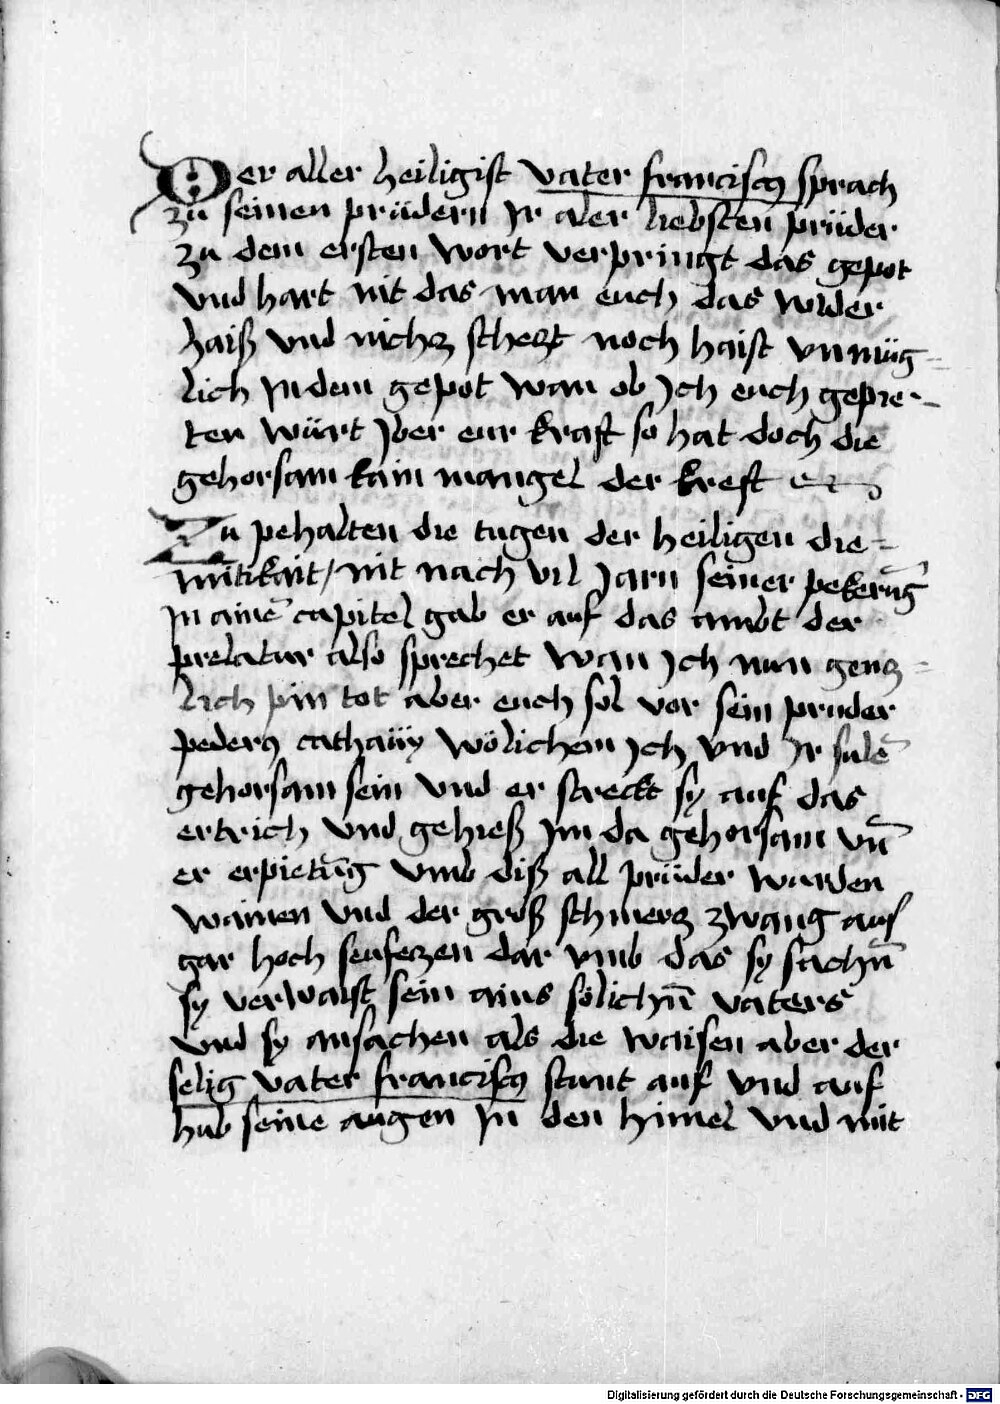 Der aller heiligist vater franciscꝯ sprach
zu seinen prüdern Ir aler liebsten prüder
zu dem ersten wort verpringt das gepot
vnd hart nit das man euch das wider
haiß vnd nichz scheczt noch haist vnmüg-
lich In dem gepot wan ob Ich euch gepie-
ten würt Jber eur kraft so hat doch die
gehorsam kain mangel der kreft
Zu pehalten die tugen der heiligen die-
mütikait / nit nach vil Jarn seiner pekerūg
In ainē capitel gab er auf das ambt der
prelatur also sprechet wan Ich nun gencz-
lich pin tot aber euch sol vor sein pruder
pederꝯ cathaüy wölichem Ich vnd Ir sulē
gehorsam sein vnd er streckt sy auf das
ertrich vnd gehieß Im da gehorsam vn̄
er erpietūg vmb diß all prüder wurden
wainen vnd der groß schmercz zwang auß
gar hoch seufczen dar vmb das sy sachn̄
sy verwaist sein ains sölichn̄ vaters
vnd sy ansachen als die waisen aber der
selig vater franciscꝯ stunt auf vnd auf
hub seine augen In den himel vnd mit
Digitalisierung gefördert durch die Deutsche Forschungsgemeinschaft - DFG